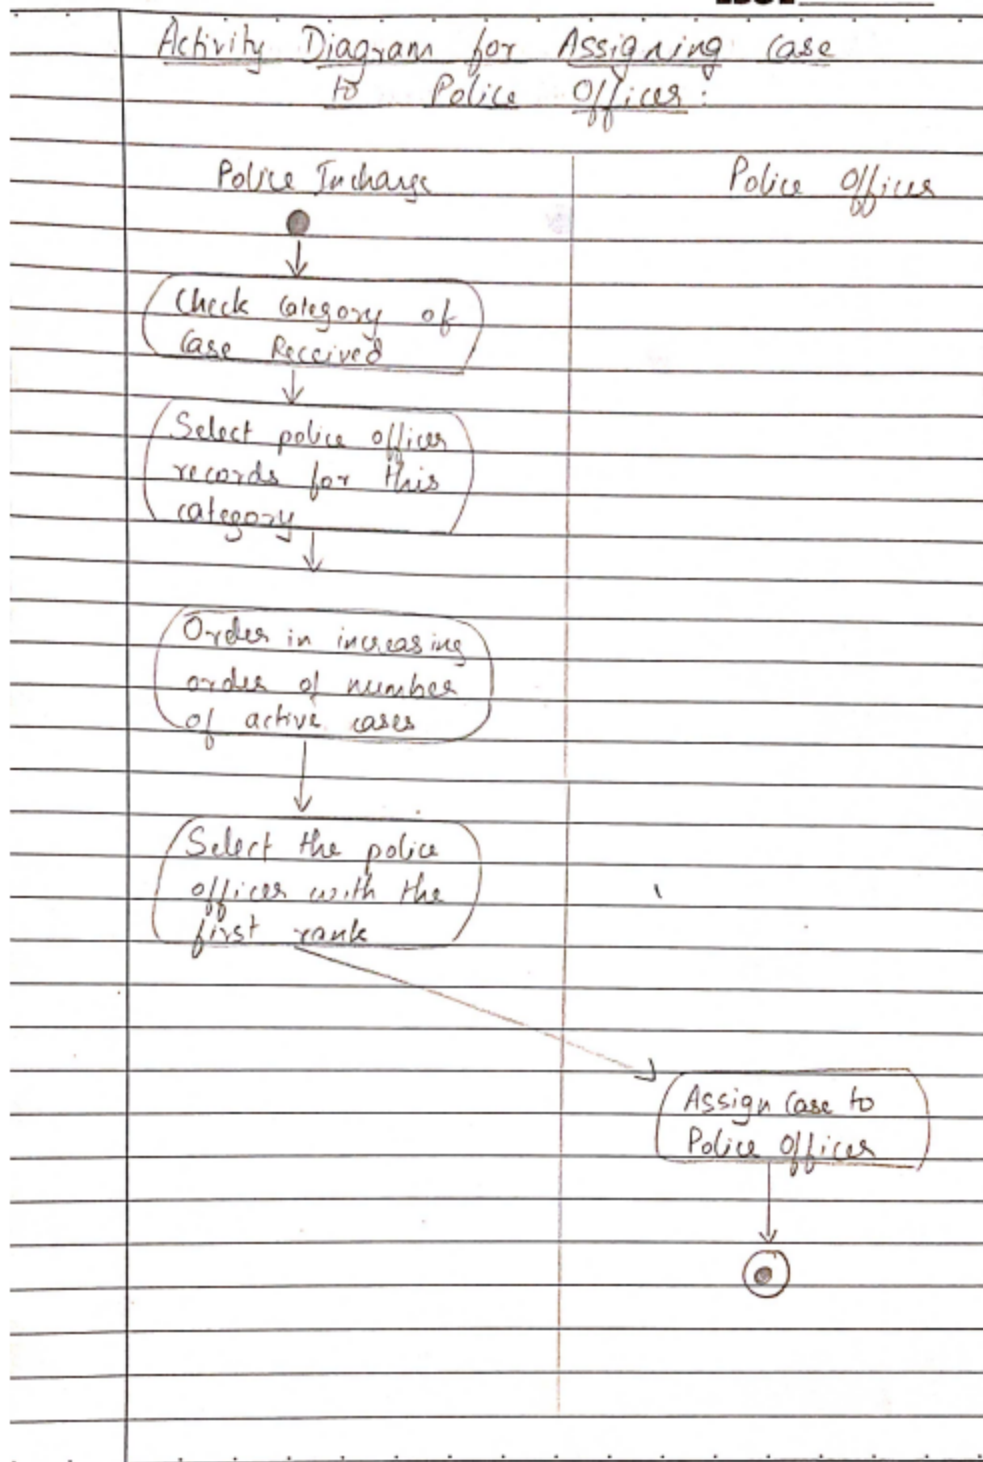 Activity Diagram for Assigning Case
to Police Officer:
Police Incharge
Police Officer
Check Category of
Case Received
Select police officer
records for this
category
Order in increasing
order of number
of active cases
Select the police
officer with the
first rank
Assign Case to
Police Officer